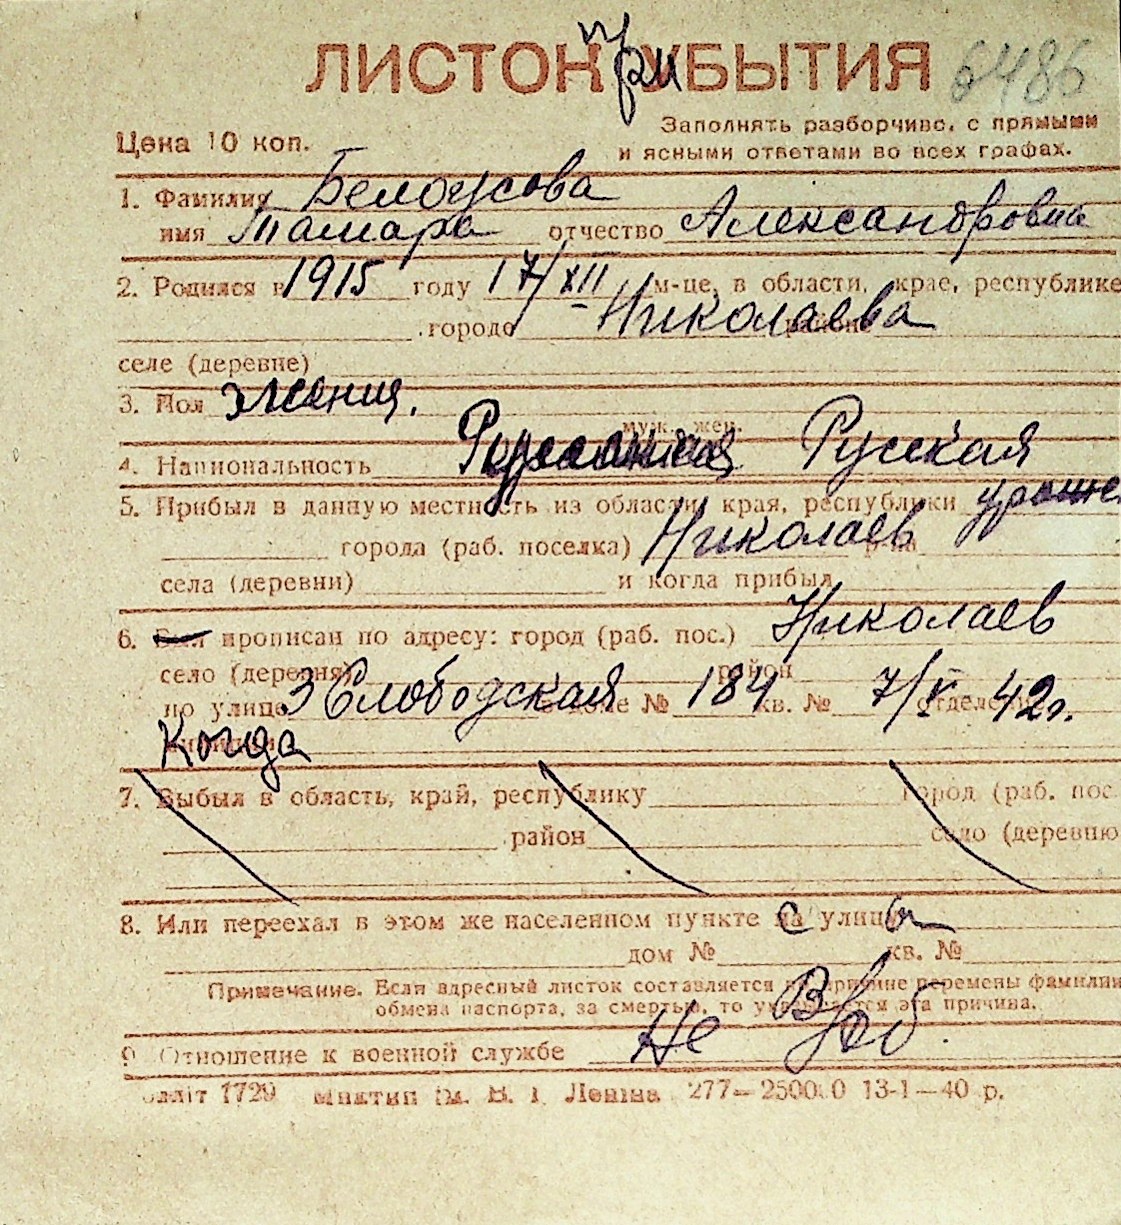 ЛИСТОК при БЫТИЯ 6486
Заполнять разборчиво, с прямыми
Цена 10 коп.
и ясными ответами во всех графах.
1. Фамилия Белоусова
имя Тамара отчество Александровна
2. Родился в 1915 году 17/XII м-це, в области, крае, республике
городе Николаева районе
селе (деревне)
3. Пол женщ.
муж., жен.
4. Национальность Русская
5. Прибыл в данную местность из области, края, республики
города (раб. поселка) Николаев р-на
села (деревни) и когда прибыл
6. Был прописан по адресу: город (раб. пос.) Николаев
село (деревня) район
по улице 3 Слободская в доме № 184 кв. № 7/V 42г. отделение
Когда
7. Выбыл в область, край, республику город (раб. пос.
район село (деревню
8. Или переехал в этом же населенном пункте с улицы
дом № кв. №
Примечание. Если адресный листок составляется по причине перемены фамилии
обмена паспорта, за смертью, то указывается эта причина.
Не В/об.
9. Отношение к военной службе
1729 В. І. Леніна 277—25000 13-1—40 р.